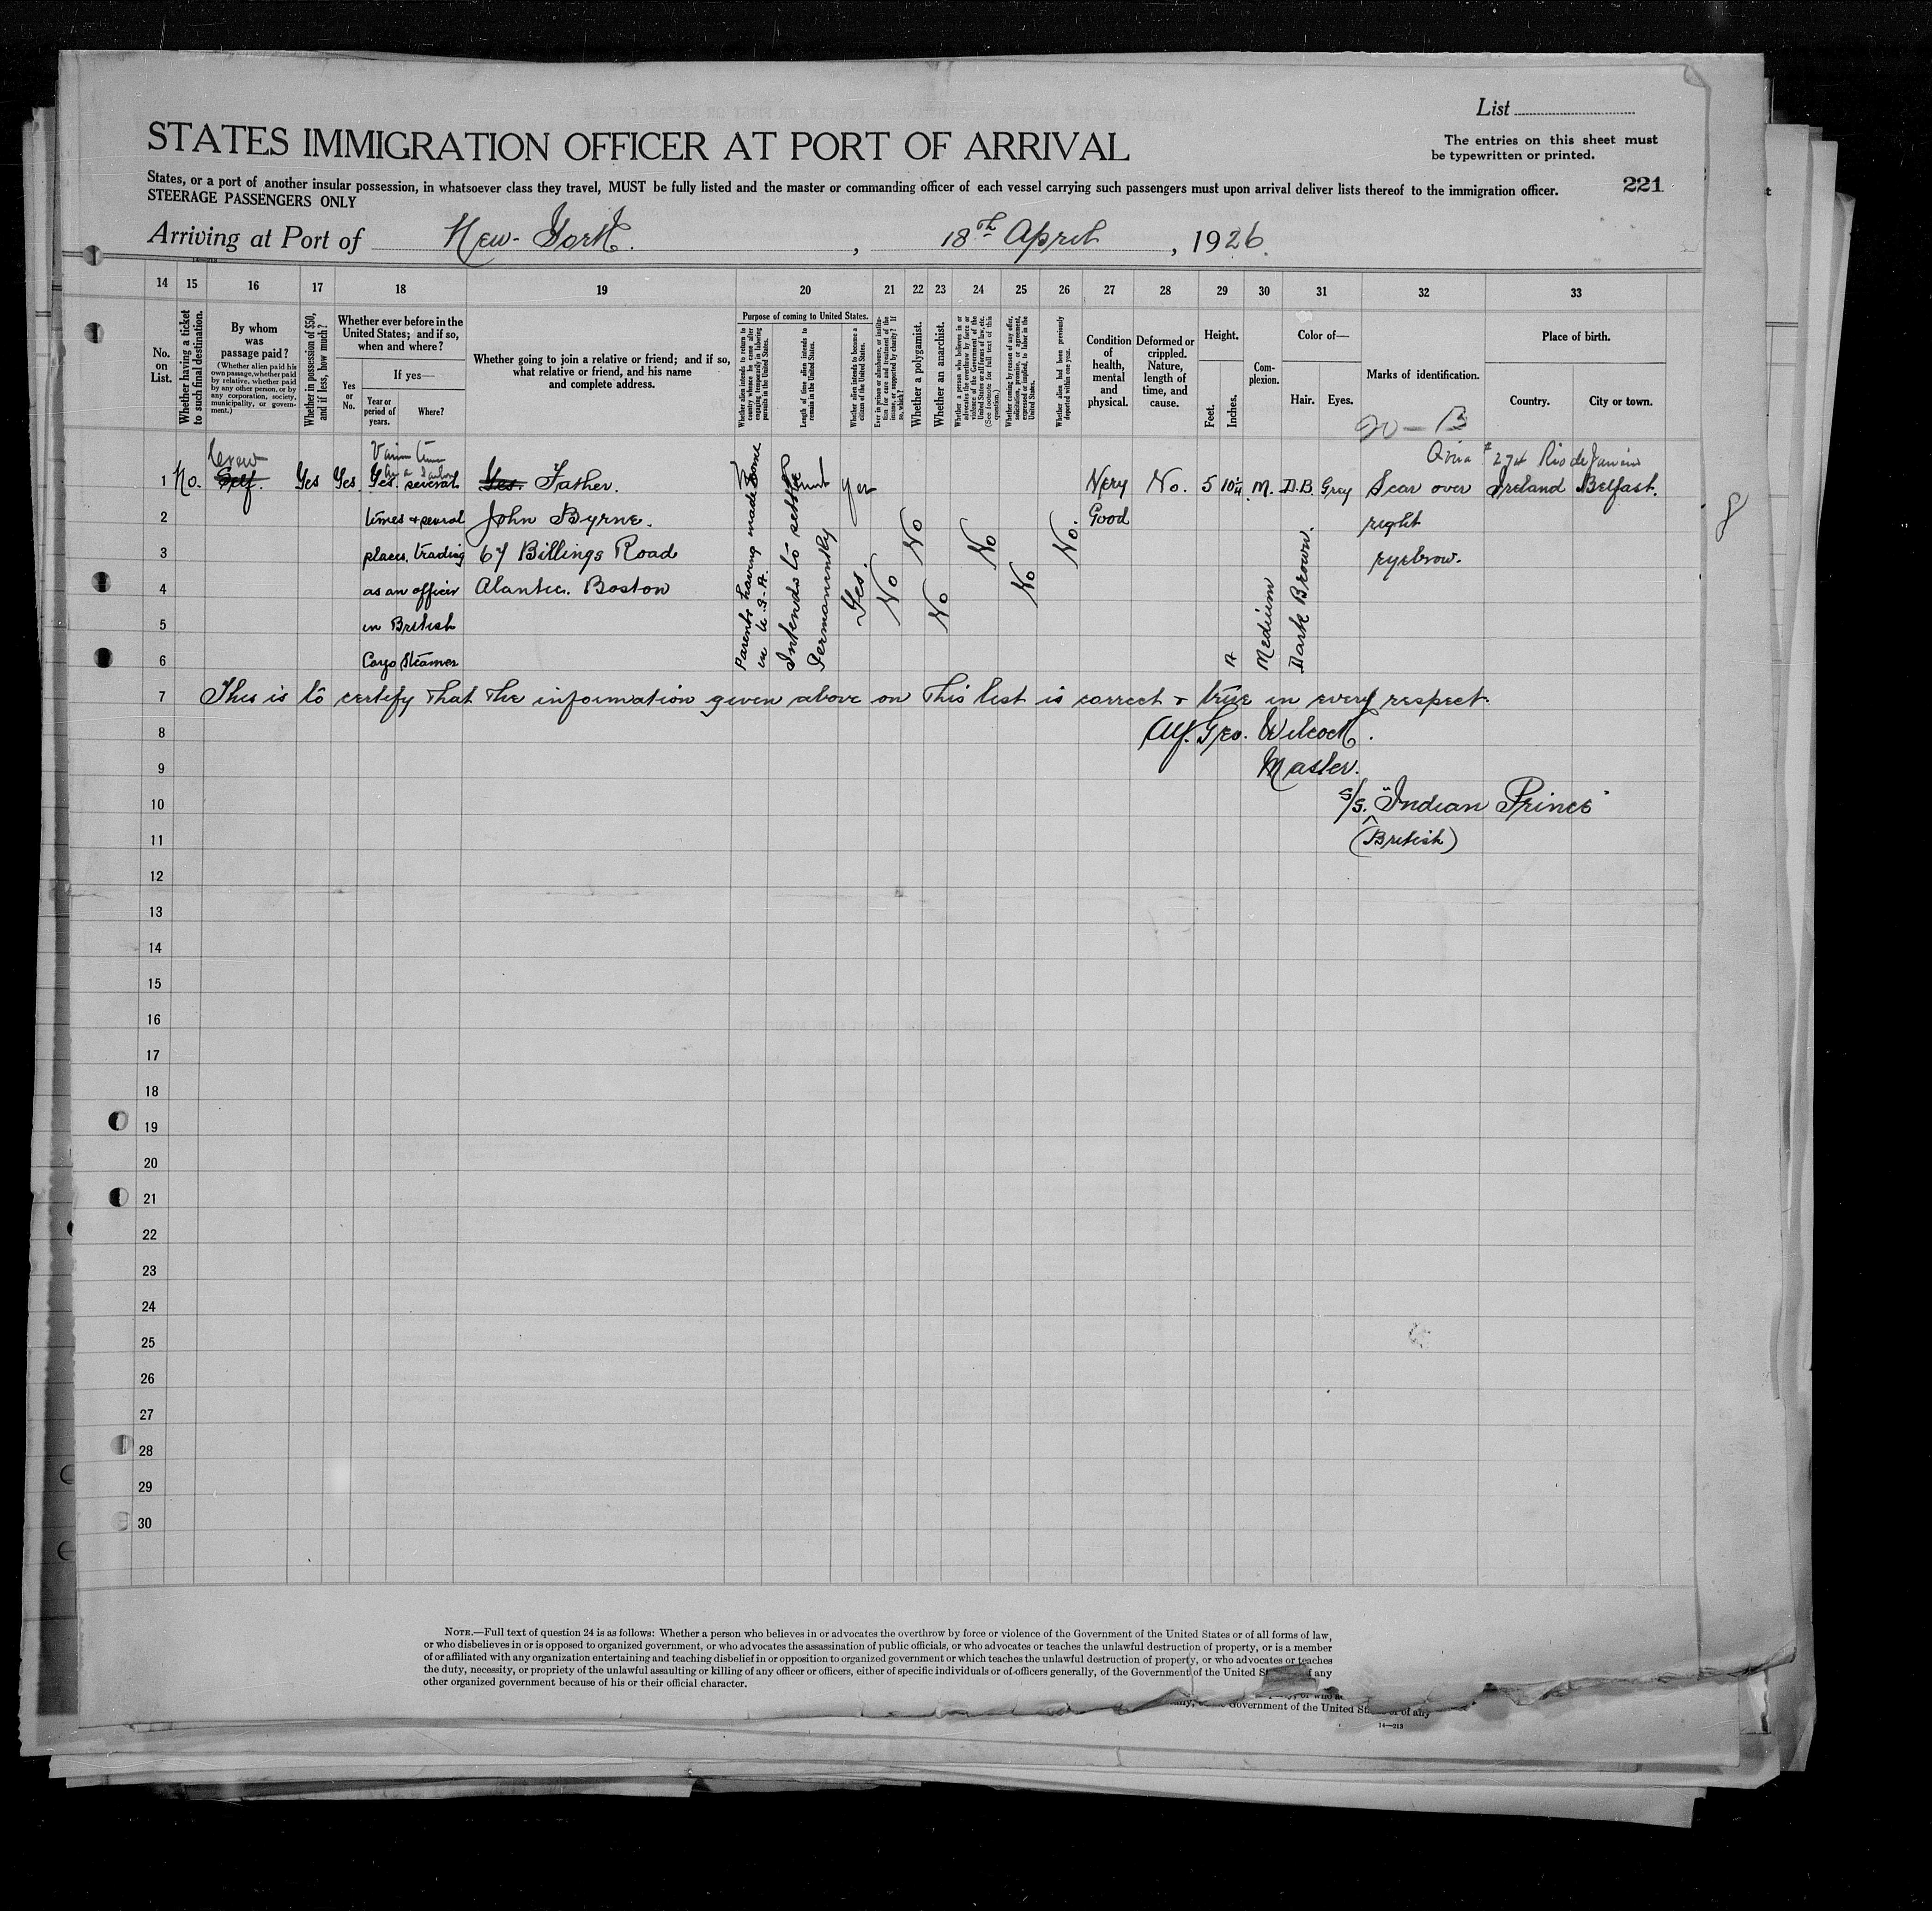 List
STATES IMMIGRATION OFFICER AT PORT OF ARRIVAL
The entries on this sheet must
be typewritten or printed.
States, or a port of another insular possession, in whatsoever class they travel, MUST be fully listed and the master or commanding officer of each vessel carrying such passengers must upon arrival deliver lists thereof to the immigration officer.
STEERAGE PASSENGERS ONLY
221
Arriving at Port of New-York. , 18th April , 1926.
14 15 16 17 18 19 20 21 22 23 24 25 26 27 28 29 30 31 32 33
No. on List.
Whether having a ticket to such final destination.
By whom was passage paid?
(Whether alien paid his own passage, whether paid by relative, whether paid by any other person, or by any corporation, society, municipality, or government.)
Whether in possession of $50, and if less, how much?
Whether ever before in the United States; and if so, when and where?
Yes or No.
If yes—
Year or period of years.
Where?
Whether going to join a relative or friend; and if so, what relative or friend, and his name and complete address.
Purpose of coming to United States.
Whether alien intends to return to country whence he came after engaging temporarily in laboring pursuits in the United States.
Length of time alien intends to remain in the United States.
Whether alien intends to become a citizen of the United States.
Ever in prison or almshouse, or institution for care and treatment of the insane, or supported by charity? If so, which?
Whether a polygamist.
Whether an anarchist.
Whether a person who believes in or advocates the overthrow by force or violence of the Government of the United States or all forms of law, etc. (See footnote for full text of this question.)
Whether coming by reason of any offer, solicitation, promise, or agreement, expressed or implied, to labor in the United States.
Whether alien had been previously deported within one year.
Condition of health, mental and physical.
Deformed or crippled. Nature, length of time, and cause.
Height.
Feet.
Inches.
Complexion.
Color of—
Hair. Eyes.
Marks of identification.
Place of birth.
Country.
City or town.
Rio de Janeiro
1 No. Self. Yes Yes. Yes. several Yes. Father. Yes Very No. 5 10¼ M. D.B. Grey Scar over Ireland Belfast.
2 times & several John Byrne. Good right
3 places, trading 67 Billings Road eyebrow.
4 as an officer Alantic. Boston
5 in British
6 Cargo Steamer
Parents having made home in U.S.A.
Intends to settle Permanently
Yes.
No
No
No
No
No
No.
Medium
Dark Brown.
7 This is to certify that the information given above on this list is correct & true in every respect.
8 Alf. Geo. Wilcock.
9 Master.
10 s/s. "Indian Prince"
11 (British)
12
13
14
15
16
17
18
19
20
21
22
23
24
25
26
27
28
29
30
8
NOTE.—Full text of question 24 is as follows: Whether a person who believes in or advocates the overthrow by force or violence of the Government of the United States or of all forms of law,
or who disbelieves in or is opposed to organized government, or who advocates the assassination of public officials, or who advocates or teaches the unlawful destruction of property, or is a member
of or affiliated with any organization entertaining and teaching disbelief in or opposition to organized government or which teaches the unlawful destruction of property, or who advocates or teaches
the duty, necessity, or propriety of the unlawful assaulting or killing of any officer or officers, either of specific individuals or of officers generally, of the Government of the United any
other organized government because of his or their official character.
Government of the United of any
14—213